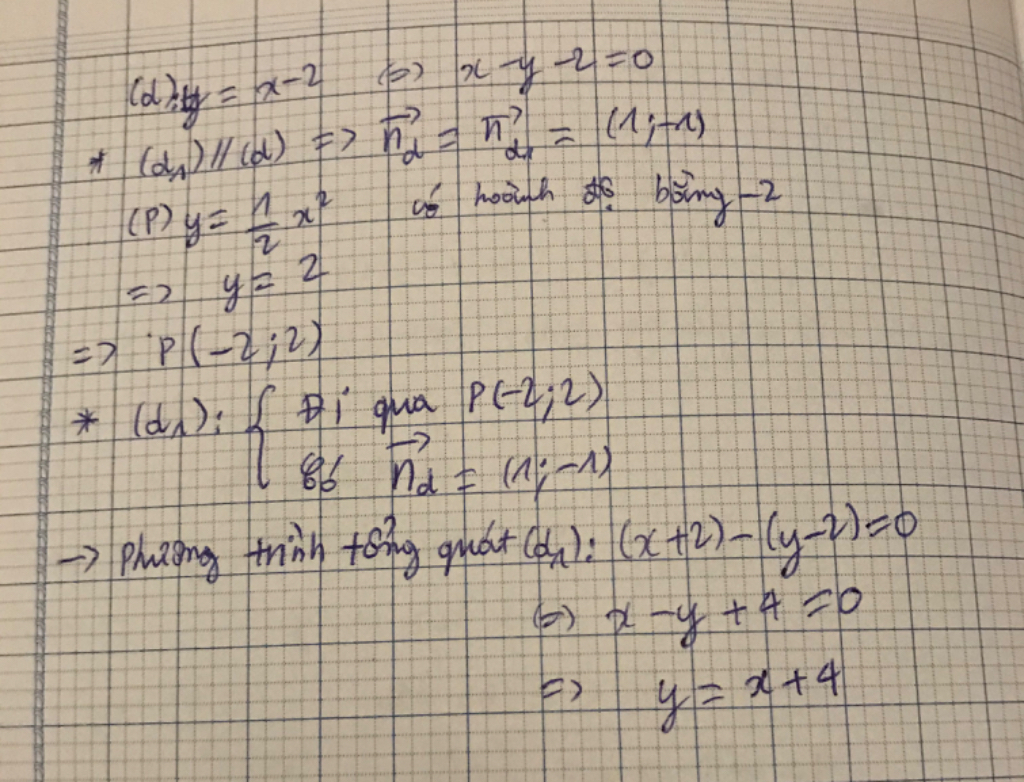 (d): y = x-2 (=) x - y - 2 = 0
* (d₁) // (d) => n⃗_d = n⃗_d₁ = (1;-1)
(P) y = 1/2 x² có hoành độ bằng -2
=> y = 2
=> P(-2;2)
* (d₁): { Đi qua P(-2;2)
Có n⃗_d = (1;-1)
-> phương trình tổng quát (d₁): (x+2)-(y-2)=0
(=) x - y + 4 = 0
=> y = x+4